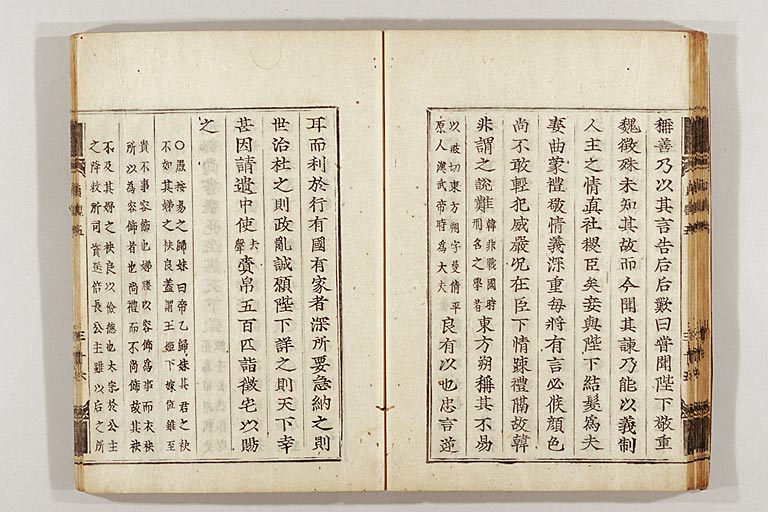 稱善乃以其言告后后歎曰嘗聞陛下敬重
魏徵殊未知其故而今聞其諫乃能以義制
人主之情眞社稷臣矣妾與陛下結髮爲夫
妻曲蒙禮敬情義深重每將有言必候顔色
尚不敢輕犯威嚴况在臣下情踈禮隔故韓
非謂之說難韓非戰國時刑名之學者東方朔稱其不易
以豉切東方朔字曼倩平原人漢武帝時爲大夫良有以也忠言逆
耳而利於行有國有家者深所要急納之則
世治杜之則政亂誠願陛下詳之則天下幸
甚因請遣中使去聲賷帛五百匹詣徵宅以賜
之
○愚按易之歸妹曰帝乙歸妹其君之袂
不如其娣之袂良蓋謂王姬下嫁位雖至
貴不事容飾也娣媵以容飾爲事而衣袂
所以爲容飾者也尚禮而不尚飾故其袂
不及其娣之袂良以儉德也太宗於公主
之降敕所司資送倍長公主雖以后之所